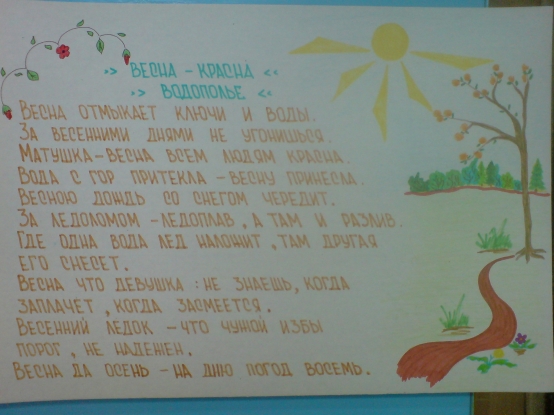 >> ВЕСНА – КРАСНА <<
>> ВОДОПОЛЬЕ <<
ВЕСНА ОТМЫКАЕТ КЛЮЧИ И ВОДЫ.
ЗА ВЕСЕННИМИ ДНЯМИ НЕ УГОНИШЬСЯ.
МАТУШКА – ВЕСНА ВСЕМ ЛЮДЯМ КРАСНА.
ВОДА С ГОР ПРИТЕКЛА – ВЕСНУ ПРИНЕСЛА.
ВЕСНОЮ ДОЖДЬ СО СНЕГОМ ЧЕРЕДИТ.
ЗА ЛЕДОЛОМОМ – ЛЕДОПЛАВ, А ТАМ И РАЗЛИВ.
ГДЕ ОДНА ВОДА ЛЕД НАЛОЖИТ, ТАМ ДРУГАЯ
ЕГО СНЕСЕТ.
ВЕСНА ЧТО ДЕВУШКА : НЕ ЗНАЕШЬ, КОГДА
ЗАПЛАЧЕТ, КОГДА ЗАСМЕЕТСЯ.
ВЕСЕННИЙ ЛЕДОК – ЧТО ЧУЖОЙ ИЗБЫ
ПОРОГ, НЕ НАДЕЖЕН.
ВЕСНА ДА ОСЕНЬ – НА ДНЮ ПОГОД ВОСЕМЬ.